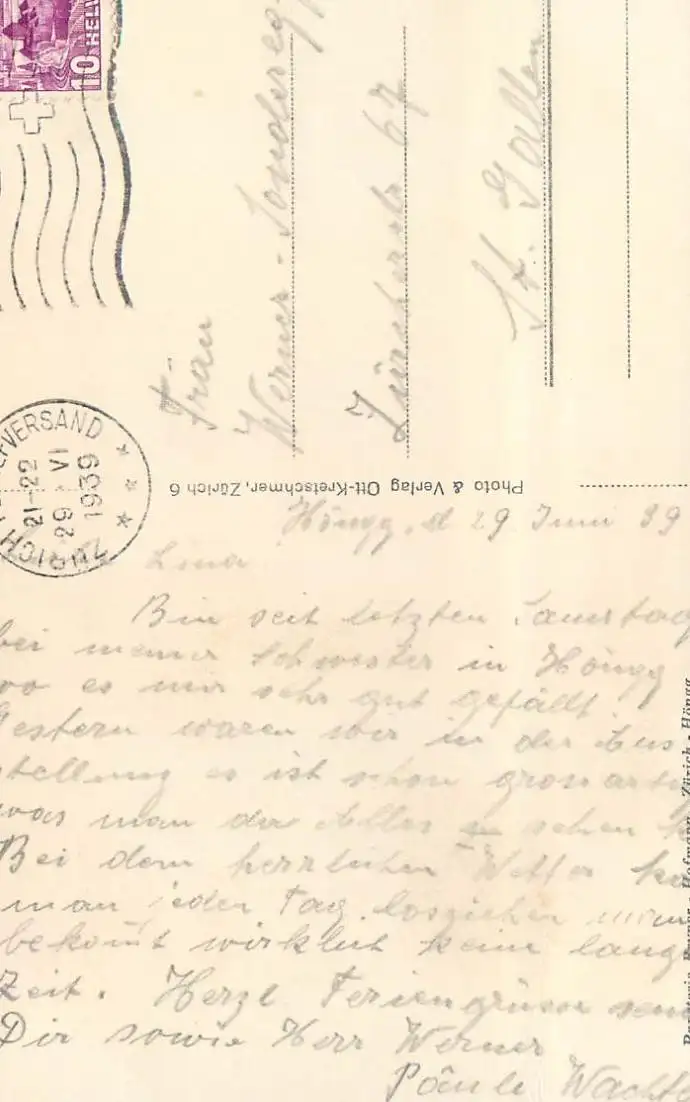 10 HELV
Frau
Werner-Sonderegg
Zürcherstr 67
St. Gallen
ZÜRICH
FVERSAND
21-22
29 VI
1939
Photo & Verlag Ott-Kretschmer, Zürich 6
Höngg, d 29 Juni 39
Lina
Bin seit letzten Samstag
bei meiner Schwester in Höngg
wo es mir sehr gut gefällt.
Gestern waren wir in der Aus
stellung es ist schon grossarti
was man da Alles zu sehen
Bei dem herrlichen Wetter
man jeden Tag losziehen
bekomt wirklich keine lange
Zeit. Herzl Feriengrüsse
Dir sowie Herr Werner
Hofmann, Zürich - Höngg